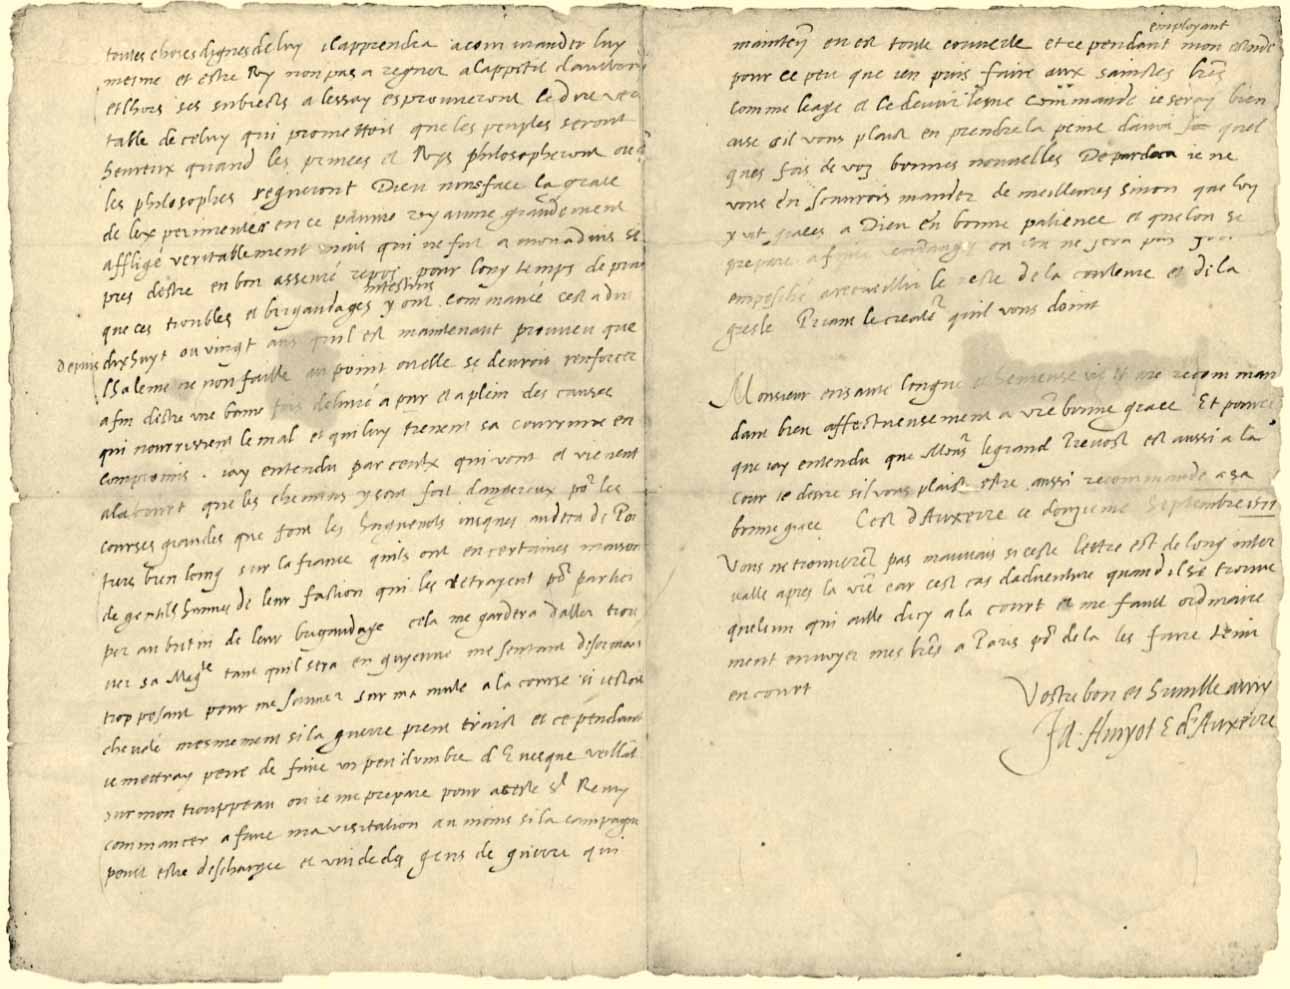 toutes choses dignes de luy il apprendra a commander luy
mesme et estre Roy non pas a regner a lappetit dautruy
et lhors ses subiects a lessay esprouveront le dire veri
table de celuy qui promettoit que les peuples seront
heureux quand les princes et Roys philosopheront ou q
les philosophes regneront Dieu nous face la grace
de lexperimenter en ce pauvre royaume grandement
affligé veritablement mais qui ne fait a mon advis
pres destre en bon asseuré repos pour long temps de puis
que ces troubles et brigandages intestins y ont commancé cest a dire
Depuis dixhuyt ou vingt ans quil est maintenant prouveu que
lhaleine ne non faille au point ou elle se devroit renforcer
afin destre une bonne fois delivré a pur et a plein des causes
qui nourrissent le mal et qui luy tienent sa couronne en
compromis. iay entendu par ceulx qui vont et vienent
a la court que les chemins y sont fort dangereux por les
courses grandes que font les huguenots iusques au deca de Poi
tiers bien loing sur la france quils ont en certaines maisons
de gentils hommes de leur faction qui les retrayent por partici
per au butin de leur brigandage cela me gardera daller trou
ver sa Magte tant quil sera en guyenne me sentant desormais
trop pesant pour me sauver sur ma mule a la course si iestois
chevalé mesmement si la guerre prent traict et ce pendant
ie mettray peine de faire un peu dumbre dEvesque veillāt
sur mon trouppeau ou ie me prepare pour a ceste St Remy
commancer a faire ma visitation au moins si la campagne
peult estre deschargee et vuidee des gens de guerre qui
mainteñ en est toute couverte et ce pendant employant mon estude
pour ce peu que ien puis faire aux sainctes lres
comme leage et le devoir le me commande ie seray bien
aise sil vous plaist en prendre la peine davoir quel
ques fois de voz bonnes nouvelles De pardeca ie ne
vous en scaurois mander de meilleures sinon que lon
y vit graces a Dieu en bonne patience et que lon se
prepare a faire vendanges ou lon ne sera pas
empesché a recueillir le reste de la couleure et de la
gresle Priant le creatr quil vous doint
Monsieur en santé longue et heureuse vie et me recomman
dant bien affectueusement a vre bonne grace Et pource
que iay entendu que Monsr le grand Prevost est aussi a la
cour ie desire sil vous plaist estre aussi recommandé a sa
bonne grace Cest dAuxerre ce donzieme Septembre 1577
Vous ne trouverez pas mauvais si ceste lettre est de long inter
valle apres la vre car cest cas dadventure quand il se trouve
quelcun qui aille dicy a la court et me fault ordinaire
ment envoyer mes lres a Paris por de la les faire tenir
en court
Vostre bon et humble amy
Ja. Amyot E. dAuxerre